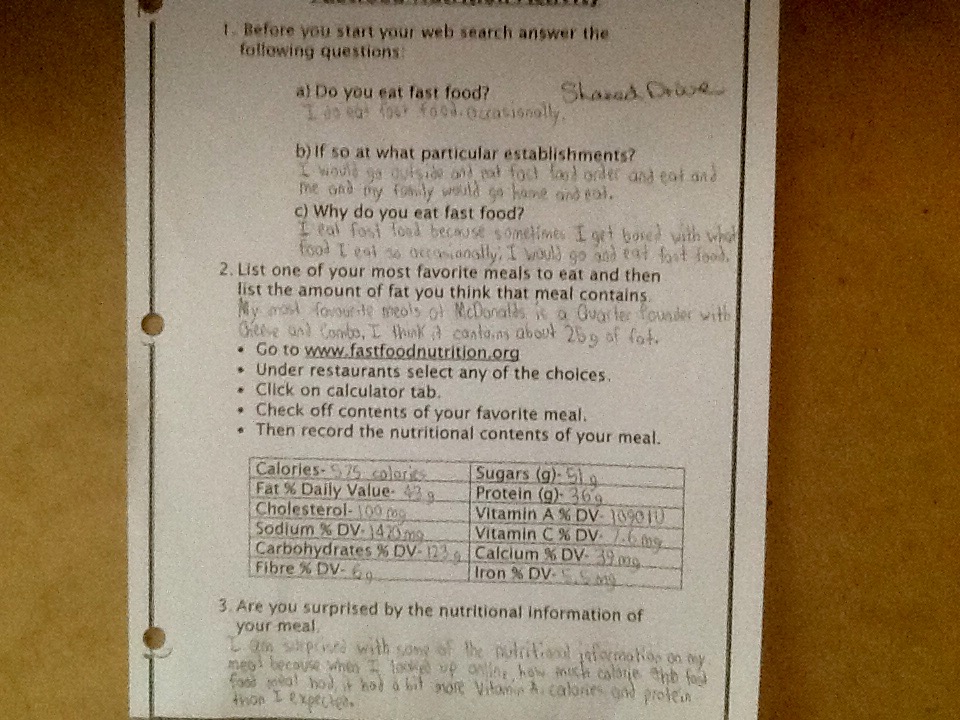 1. Before you start your web search answer the
following questions:
a) Do you eat fast food? Shared Drive
I do eat fast food occasionally.
b) If so at what particular establishments?
I would go outside and eat fast food order and eat and
me and my family would go home and eat.
c) Why do you eat fast food?
I eat fast food because sometimes I get bored with what
food I eat so occasionally, I would go and eat fast food.
2. List one of your most favorite meals to eat and then
list the amount of fat you think that meal contains.
My most favourite meals at McDonalds is a Quarter Pounder with
Cheese and Combo, I think it contains about 25g of fat.
• Go to www.fastfoodnutrition.org
• Under restaurants select any of the choices.
• Click on calculator tab.
• Check off contents of your favorite meal.
• Then record the nutritional contents of your meal.
Calories- 575 calories Sugars (g)- 51 g
Fat % Daily Value- 43 g Protein (g)- 36g
Cholesterol- 100 mg Vitamin A % DV- 1090 IU
Sodium % DV- 1420 mg Vitamin C % DV- 7.6 mg
Carbohydrates % DV- 123 g Calcium % DV- 39 mg
Fibre % DV- 6g Iron % DV- 5.5 mg
3. Are you surprised by the nutritional information of
your meal.
I am surprised with some of the nutritional information on my
meal because when I looked up online, how much calorie this fast
food meal had, it had a bit more Vitamin A, calories and protein
than I expected.